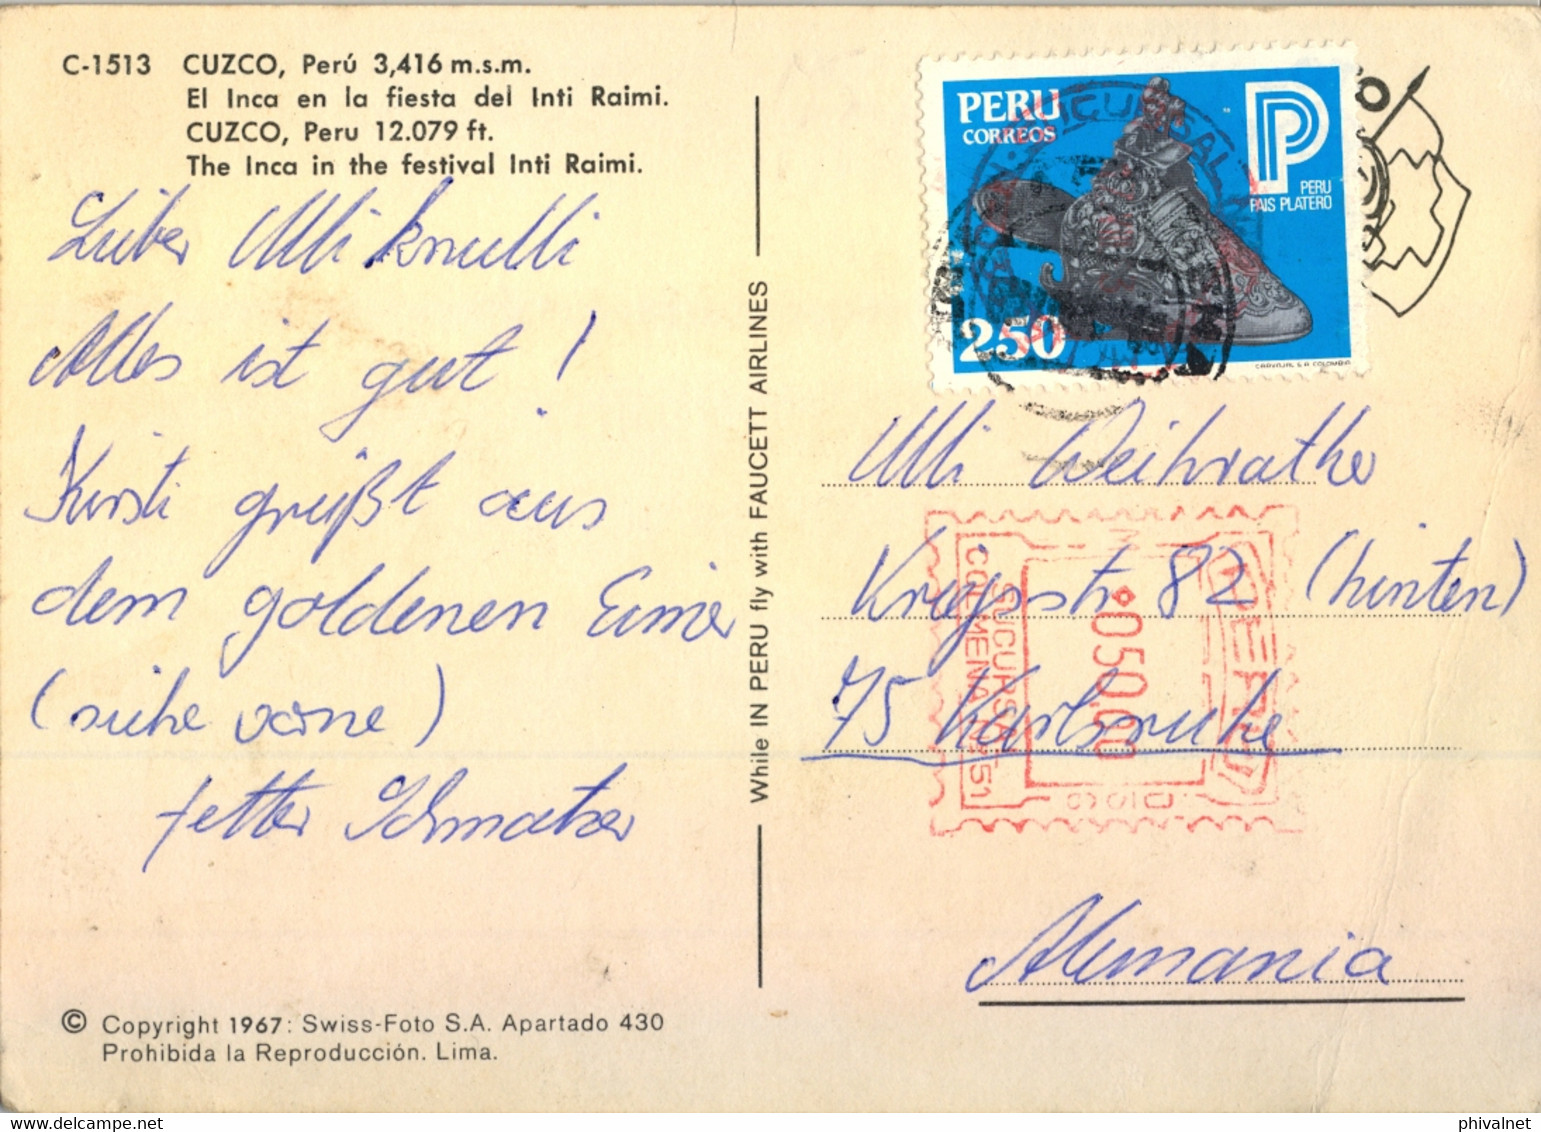 C-1513 CUZCO, Perú 3,416 m.s.m.
El Inca en la fiesta del Inti Raimi.
CUZCO, Peru 12.079 ft.
The Inca in the festival Inti Raimi.
Lieber Ulli knulli
Alles ist gut!
Kirsti grüßt aus
dem goldenen Eimer
(siehe vorne)
Schmatzer
© Copyright 1967: Swiss-Foto S.A. Apartado 430
Prohibida la Reproducción. Lima.
While IN PERU fly with FAUCETT AIRLINES
PERU
CORREOS
P
PERU
PAIS PLATERO
250
CARVAJAL S.A. COLOMBIA
SUCURSAL
Ulli Weihrather
Kriegsstr. 82 (hinten)
75 Karlsruhe
Alemania
PERU
050,00
SUCURSAL
COLMENA Nº 51
phivalnet